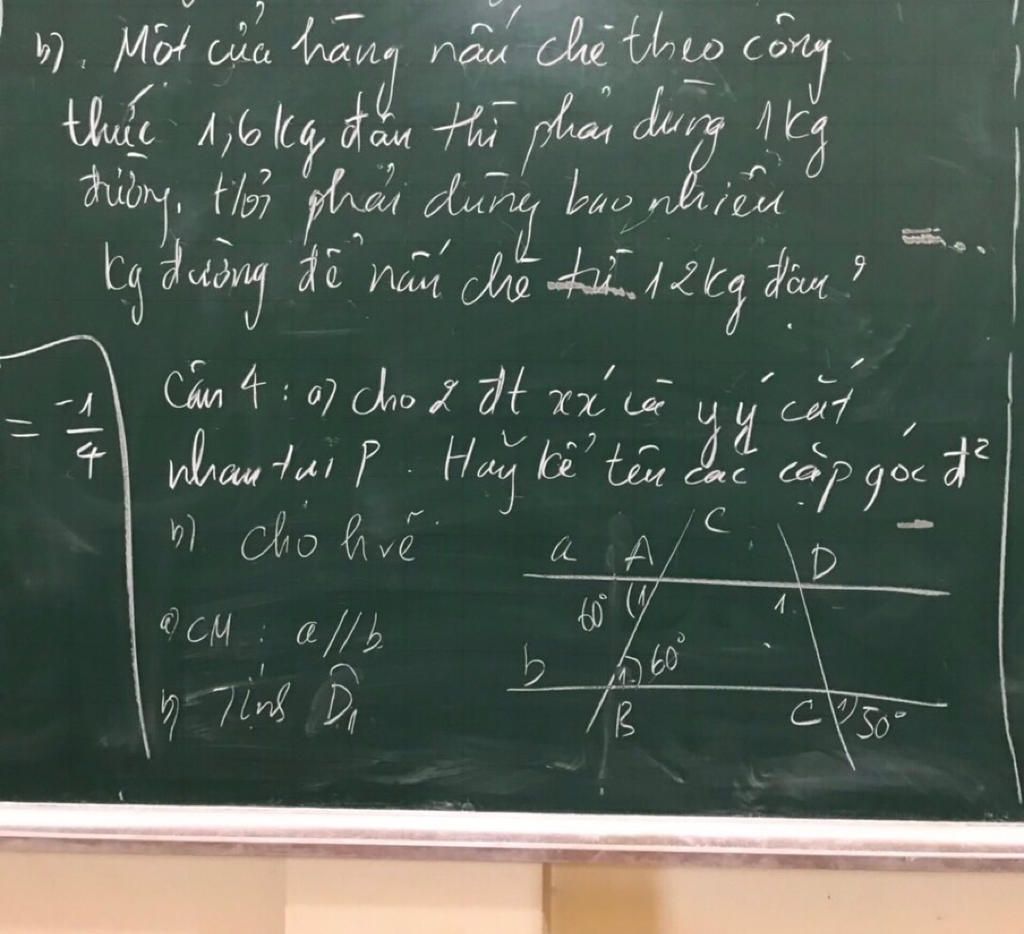 b). Một cửa hàng nấu chè theo công
thức 1,6 kg đậu thì phải dùng 1 kg
đường. Hỏi phải dùng bao nhiêu
kg đường để nấu chè từ 12 kg đậu?
= -1/4
Câu 4: a) cho 2 đt xx' và yy' cắt
nhau tại P. Hãy kể tên các cặp góc đ²
b) cho h vẽ
a A C D
60° 1 1
a) CM: a//b
b 1 60°
b) Tính D̂₁
B C 1 50°